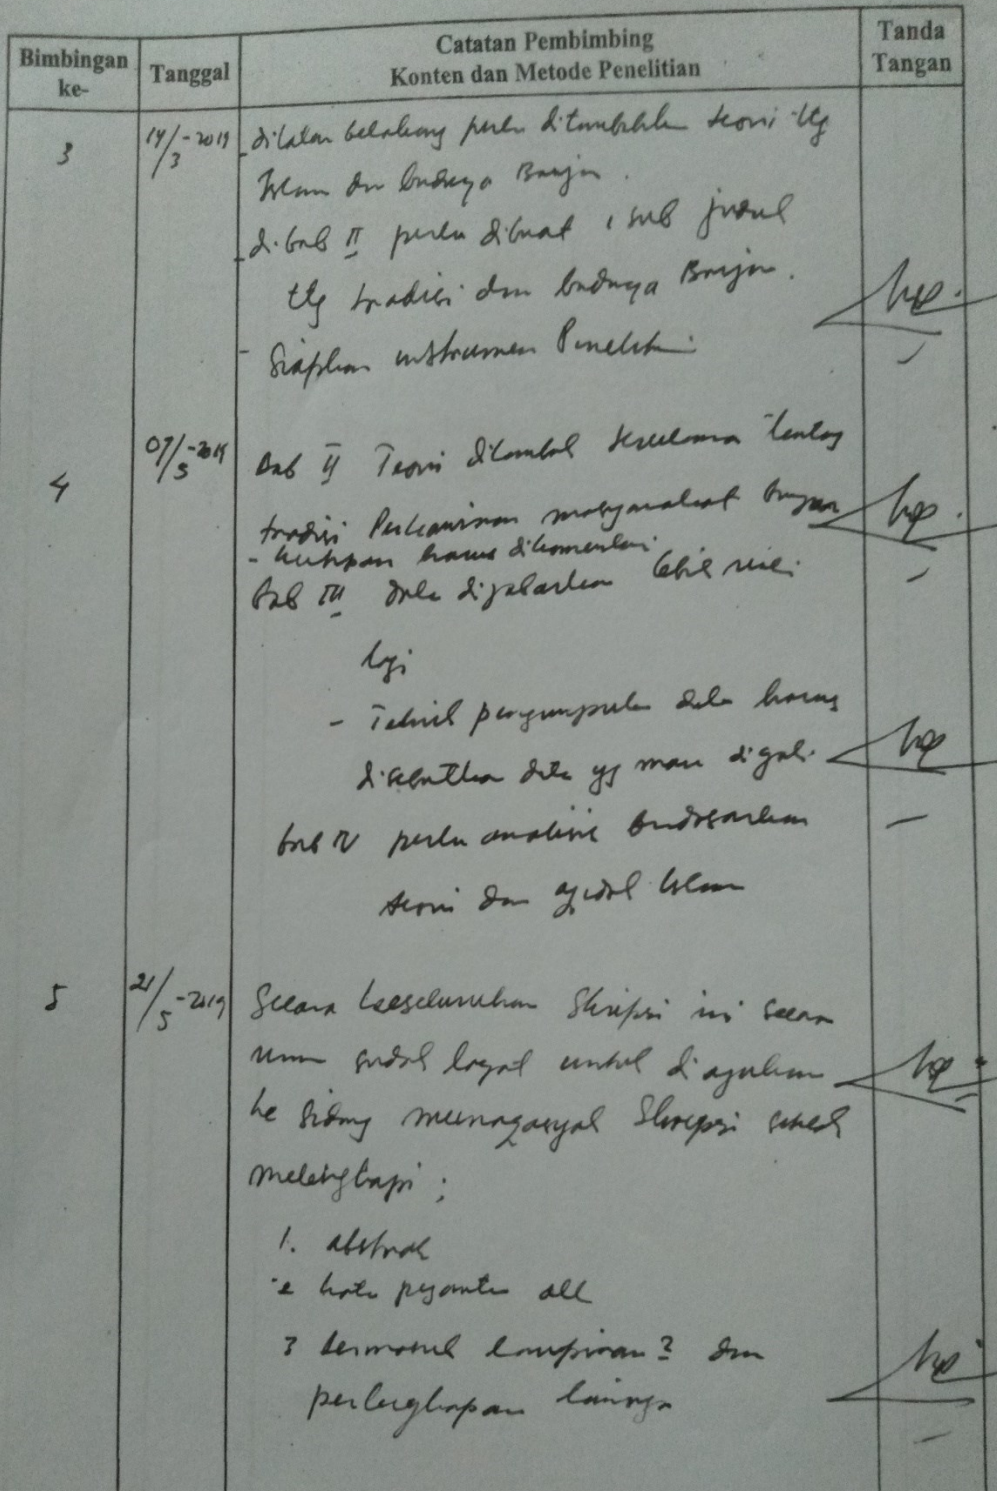 Bimbingan ke-
Tanggal
Catatan Pembimbing
Konten dan Metode Penelitian
Tanda Tangan
3
14/3-2019
- dilatar belakang perlu ditambahkan teori ttg
Islam dan budaya Banjar.
- di bab II perlu dibuat 1 sub judul
ttg tradisi dan budaya Banjar.
- Siapkan instrumen Penelitian
4
07/5-2019
Bab II Teori ditambah terutama tentang
tradisi Perkawinan masyarakat Banjar
- kutipan harus dikomentari
Bab III data dijabarkan lebih rinci
lagi
- Teknik pengumpulan data harus
disebutkan data yg mau digali
bab IV perlu analisis berdasarkan
teori dan aqidah Islam
5
21/5-2019
Secara keseluruhan Skripsi ini secara
umum sudah layak untuk diajukan
ke sidang munaqasyah Skripsi setelah
melengkapi :
1. abstrak
2 kata pengantar dll
3 termasuk lampiran2 dan
perlengkapan lainnya